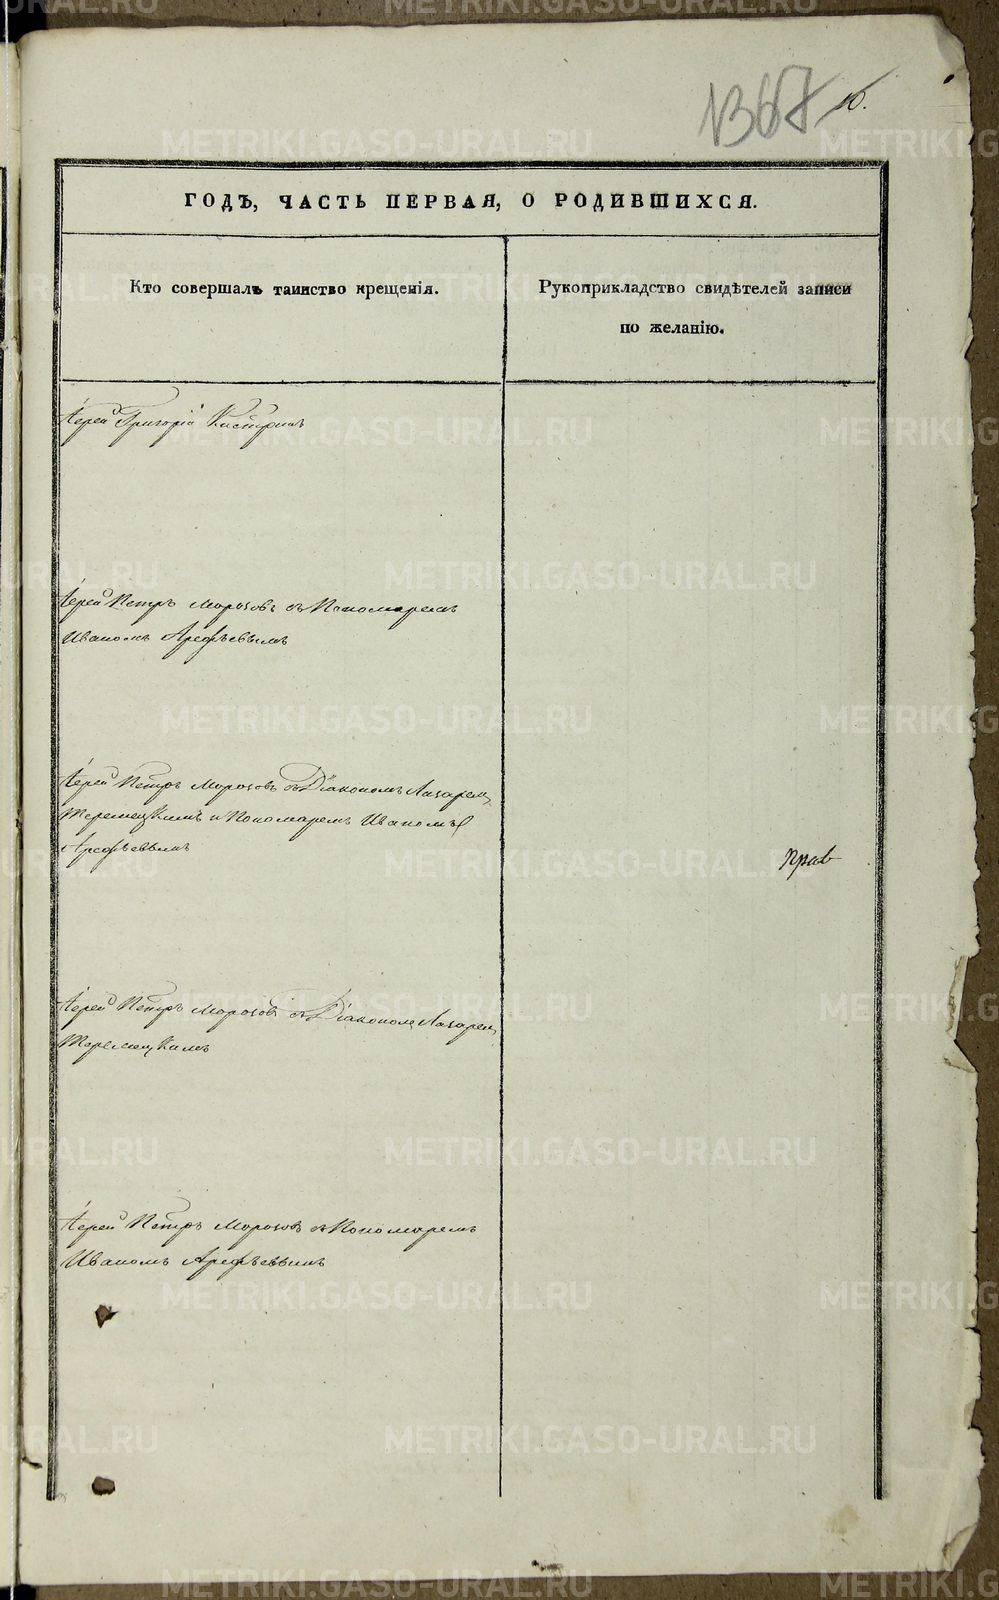 1368 10.
ГОДЪ, ЧАСТЬ ПЕРВАЯ, О РОДИВШИХСЯ.
Кто совершалъ таинство крещенія.
Рукоприкладство свидѣтелей записи
по желанію.
Іерей Григорій
Іерей Петръ Морозовъ съ Пономаремъ
Иваномъ Арефьевымъ
Іерей Петръ Морозовъ съ Діакономъ Лазарем
и Пономаремъ Иваномъ
Арефьевымъ
прав
Іерей Петръ Морозовъ съ Діакономъ Лазарем
Іерей Петръ Морозовъ съ Пономаремъ
Иваномъ Арефьевымъ
METRIKI.GASO-URAL.RU